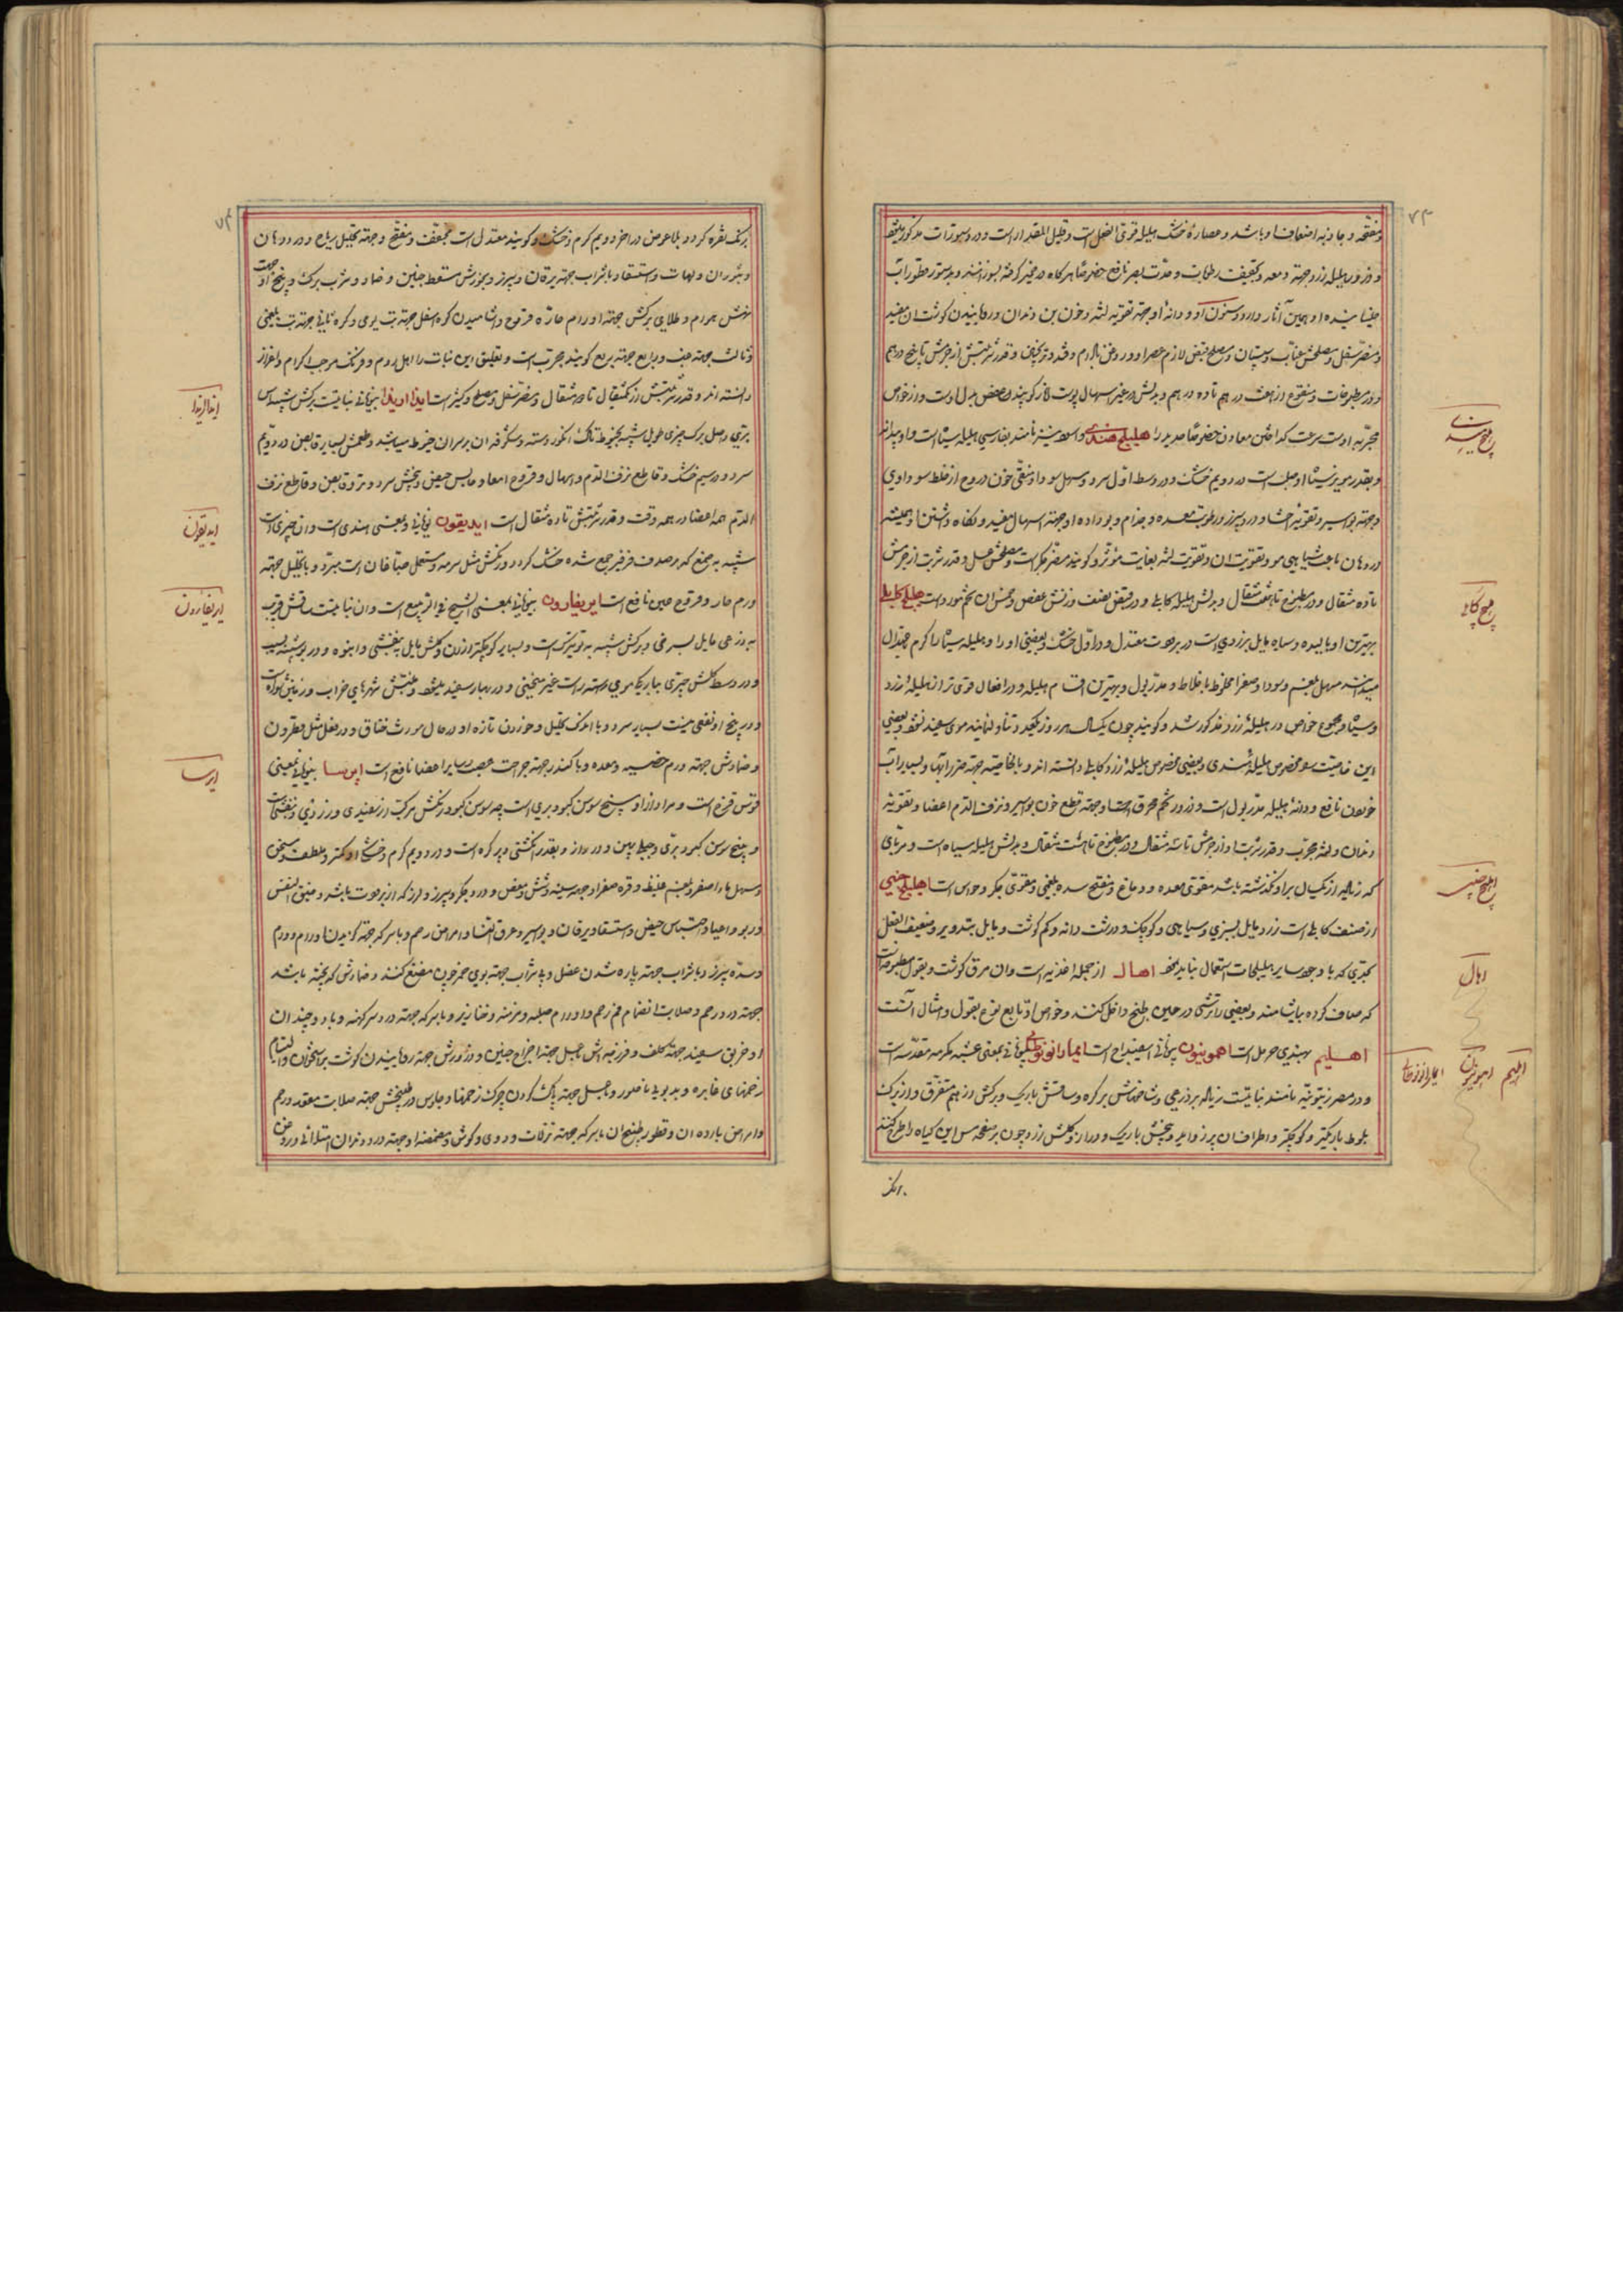 ۷۳
و مفتحه و جاذبه اضعاف او باشد و عصارهٔ خشک هلیله قوی الفعل است و قلیل المقدار است و در دستورات مذکور میشود
و ذرور هلیله زرد جهة دمعه و تخفیف رطوبات و حدت بصر نافع خصوصا هرگاه در خمیر گرفته بسوزانند
بخیسانیده او همین آثار دارد و سنون او و دانهٔ او جهة تقویه لثه و خون بن دندان و رویانیدن گوشت آن مفید
و مضر سفل و مصلحش عناب و سپستان
و در مطبوخات و منقوع از هفت درهم تا ده درهم و بدلش در غیر اسهال پوست انار گویند و عفص بدل اوست و از خواص
مجربه اوست سرعت گداختن معادن خصوصا حدید را هلیلج هندی و اسود نیز نامند بفارسی هلیله سیاه است و او بدانه
و بقدر مویز سیاه او صلب است در دویم خشک و در وسط اول سرد و مسهل سودا و منقی خون و روح از غلط سوداوی
و جهة بواسیر و تقویة احشا و درد سپرز و رطوبت معده و جذام و بو داده او جهة اسهال مفید و نگاه داشتن او همیشه
در دهان باعث سیاهی مو و تقویت آن و تقویت لثه بغایت مؤثر و گویند مضر جگر است و مصلحش عسل و قدر شربت از جرمش
تا ده مثقال و در مطبوخ تا هفت مثقال و بدلش هلیله کابلی و در قبض بنصف وزنش عفص هلیلج کابلی
بهترین او بالیده و سیاه مایل بزردی است در برودت معتدل و در اول خشک و بعضی او را و هلیله سیاه را گرم
میدانند مسهل بلغم و سودا و صفرا مخلوط باخلاط و مدر بول و بهترین اقسام هلیله و در افعال قوی تر از هلیلهٔ زرد
و سیاه و مجموع خواص در هلیلهٔ زرد مذکور شد و گویند چون یکسال هر روز یکعدد تناول نمایند موی سفید نشود و بعضی
این خاصیت مو مخصوص هلیلهٔ هندی و بعضی مخصوص هلیلهٔ زرد و کابلی دانسته اند و بالخاصیه جهة ضرر آبها
خوردن نافع و دانهٔ هلیله مدر بول است و زرور تخم محرق او جهة قطع خون بواسیر و نزف الدم اعضا و تقویة
دندان و لثه مجرب و قدر شربت او از جرمش تا سه مثقال و در مطبوخ تا هشت مثقال و بدلش هلیله سیاه است و مربای
که زیاده از یکسال بر او نگذشته باشد مقوی معده و دماغ و مفتح سده بلغمی و مقوی جگر و حواس است اهلیلج چینی
از صنف کابلی است زرد مایل بسبزی و سیاهی و کوچک و درشت دانه و کم گوشت و مایل بتدویر و ضعیف الفعل
بحدی که با وجود سایر هلیلجات استعمال نباید نمود اهال از جمله اغذیه است و آن مرق گوشت و بقول مطبوخه است
که صاف کرده بیاشامند و بعضی را ترشی در حین طبخ داخل کنند و خواص او تابع نوع بقول و امثال آنست
اهلیم بهندی حرمل است اهمونیون بیونانی اسفیداج است ایمارانوتوطالس بیونانی بمعنی عشبه مکرمه مقدسه است
و در مصر زیتونیه نامند نباتیست زیاده بر ذرعی و شاخهاش پر گره و ساقش باریک و برگش از هم متفرق و از برگ
بلوط باریکتر و کوچکتر و اطراف آن پر زواید و بیخش باریک و دراز و گلش زرد چون بر صفحه مس این گیاه را طرح کنند
برنگ
هلیلج هندی
هلیلج کابلی
اهلیلج چینی
اهال
اهلیم
اهمونیون
۷۴
برنگ نقره گردد بلاعوض در آخر دویم گرم و خشک و گویند معتدل است مجفف و مفتح و جهة تحلیل ریاح و درد دهان
و بثور آن و لهات و استسقا و با شراب جهة یرقان و سپرز و بخورش مسقط جنین و ضماد و شرب برگ و بیخ او جهت
نهش هوام و طلای برگش جهة اورام حاره قروح و آشامیدن گره اسفل جهة تب یومی و گره ثانی جهة تب بلغمی
و ثالث جهة غب و رابع جهة ربع گویند مجرب است و تعلیق این نبات را اهل روم و فرنگ موجب اکرام و اعزاز
دانسته اند و قدر شربتش از یکمثقال تا دو مثقال و مضر سفل و مصلح کثیر است ایدا اریدا بیونانی نباتیست برگش شبیه بآس
بری و اصل برگ چیزی طویل شبیه بخیوط تاک انگور رسته و شکوفه آن بر سر آن خیوط میباشد و طعمش بسیار قابض در دویم
سرد و در سیم خشک و قاطع نزف الدم و اسهال و قروح امعا و حابس حیض و بیخش سرد و تر و قابض و قاطع نزف
الدم همه اعضا در همه وقت و قدر شربتش تا ده مثقال است ایدیقون یونانی و بمعنی هندی است و آن چیزی است
شبیه بصمغ که در صدف فرفیر جمع شده خشک گردد و رنگش مثل سرمه و مستعمل صباغان است مبرد و با تحلیل جهة
ورم حار و قروح عین نافع است ایریغارون بیونانی بمعنی الشیخ فی الربیع است و آن نباتیست ساقش قریب
بذرعی مایل بسرخی و برگش شبیه به تیزک است و بسیار کوچکتر از آن و گلش مایل به بنفشی و انبوه
و در وسط گلش چیزی بباریکی موی رسته راست غیر منحنی و در بهار سفید میشود و منبتش شهرهای خراب و زمین شوراست
و در بیخ او نفعی نیست بسیار سرد و با اندک تحلیل و خوردن تازه او در حال مورث خناق و در فعل مثل فطر و آن
و ضمادش جهة ورم خصیه و معده و با کندر جهة جراحت عصب و سایر اعضا نافع است ایرسا بیونانی بمعنی
قوس قزح است و مراد از او بیخ سوسن کبود بری است چه سوسن کبود رنگش مرکب از سفیدی و زردی و بنفشی است
و بیخ سوسن کبود بری و جبلی پهن و دراز و بقدر انگشتی و پر گره است و در دویم گرم و خشک او کمتر و ملطف و مسخن
و مسهل ماء اصفر و بلغم غلیظ و قره صفرا و جهة سینه و شش و مغص و درد جگر و سپرز و لرز که از برودت باشد و ضیق النفس
و ربو و اعیا و احتباس حیض و استسقا و یرقان و بواسیر و عرق النسا و امراض رحم و با سرکه جهة گزیدن هوام و ورم
و سدهٔ سپرز و با شراب جهة پاره شدن عضل و با شراب جهة بوی دهن چون مضمضه کنند و ضمادش که پخته باشد
جهة درد رحم و صلابت و انضمام فم رحم و اورام صلبه و مزمنه و خنازیر و با سرکه جهة درد سر کهنه و با دو چندان
او خربق سفید جهة کلف و فرزجه اش با عسل جهة اخراج جنین و ذرورش جهة رویانیدن گوشت بر استخوان و التیام
زخمهای غایره و بدبو و با عسل جهة پاک کردن چرک زخمها و جلوس در طبیخش جهة صلابت مقعد و رحم
و امراض بارده آن و قطور طبیخ آن با سرکه جهة نزلات و دوی گوش و مضمضه او جهة درد دندان امتلائی و روغن
ایدا اریدا
ایدیقون
ایریغارون
ایرسا